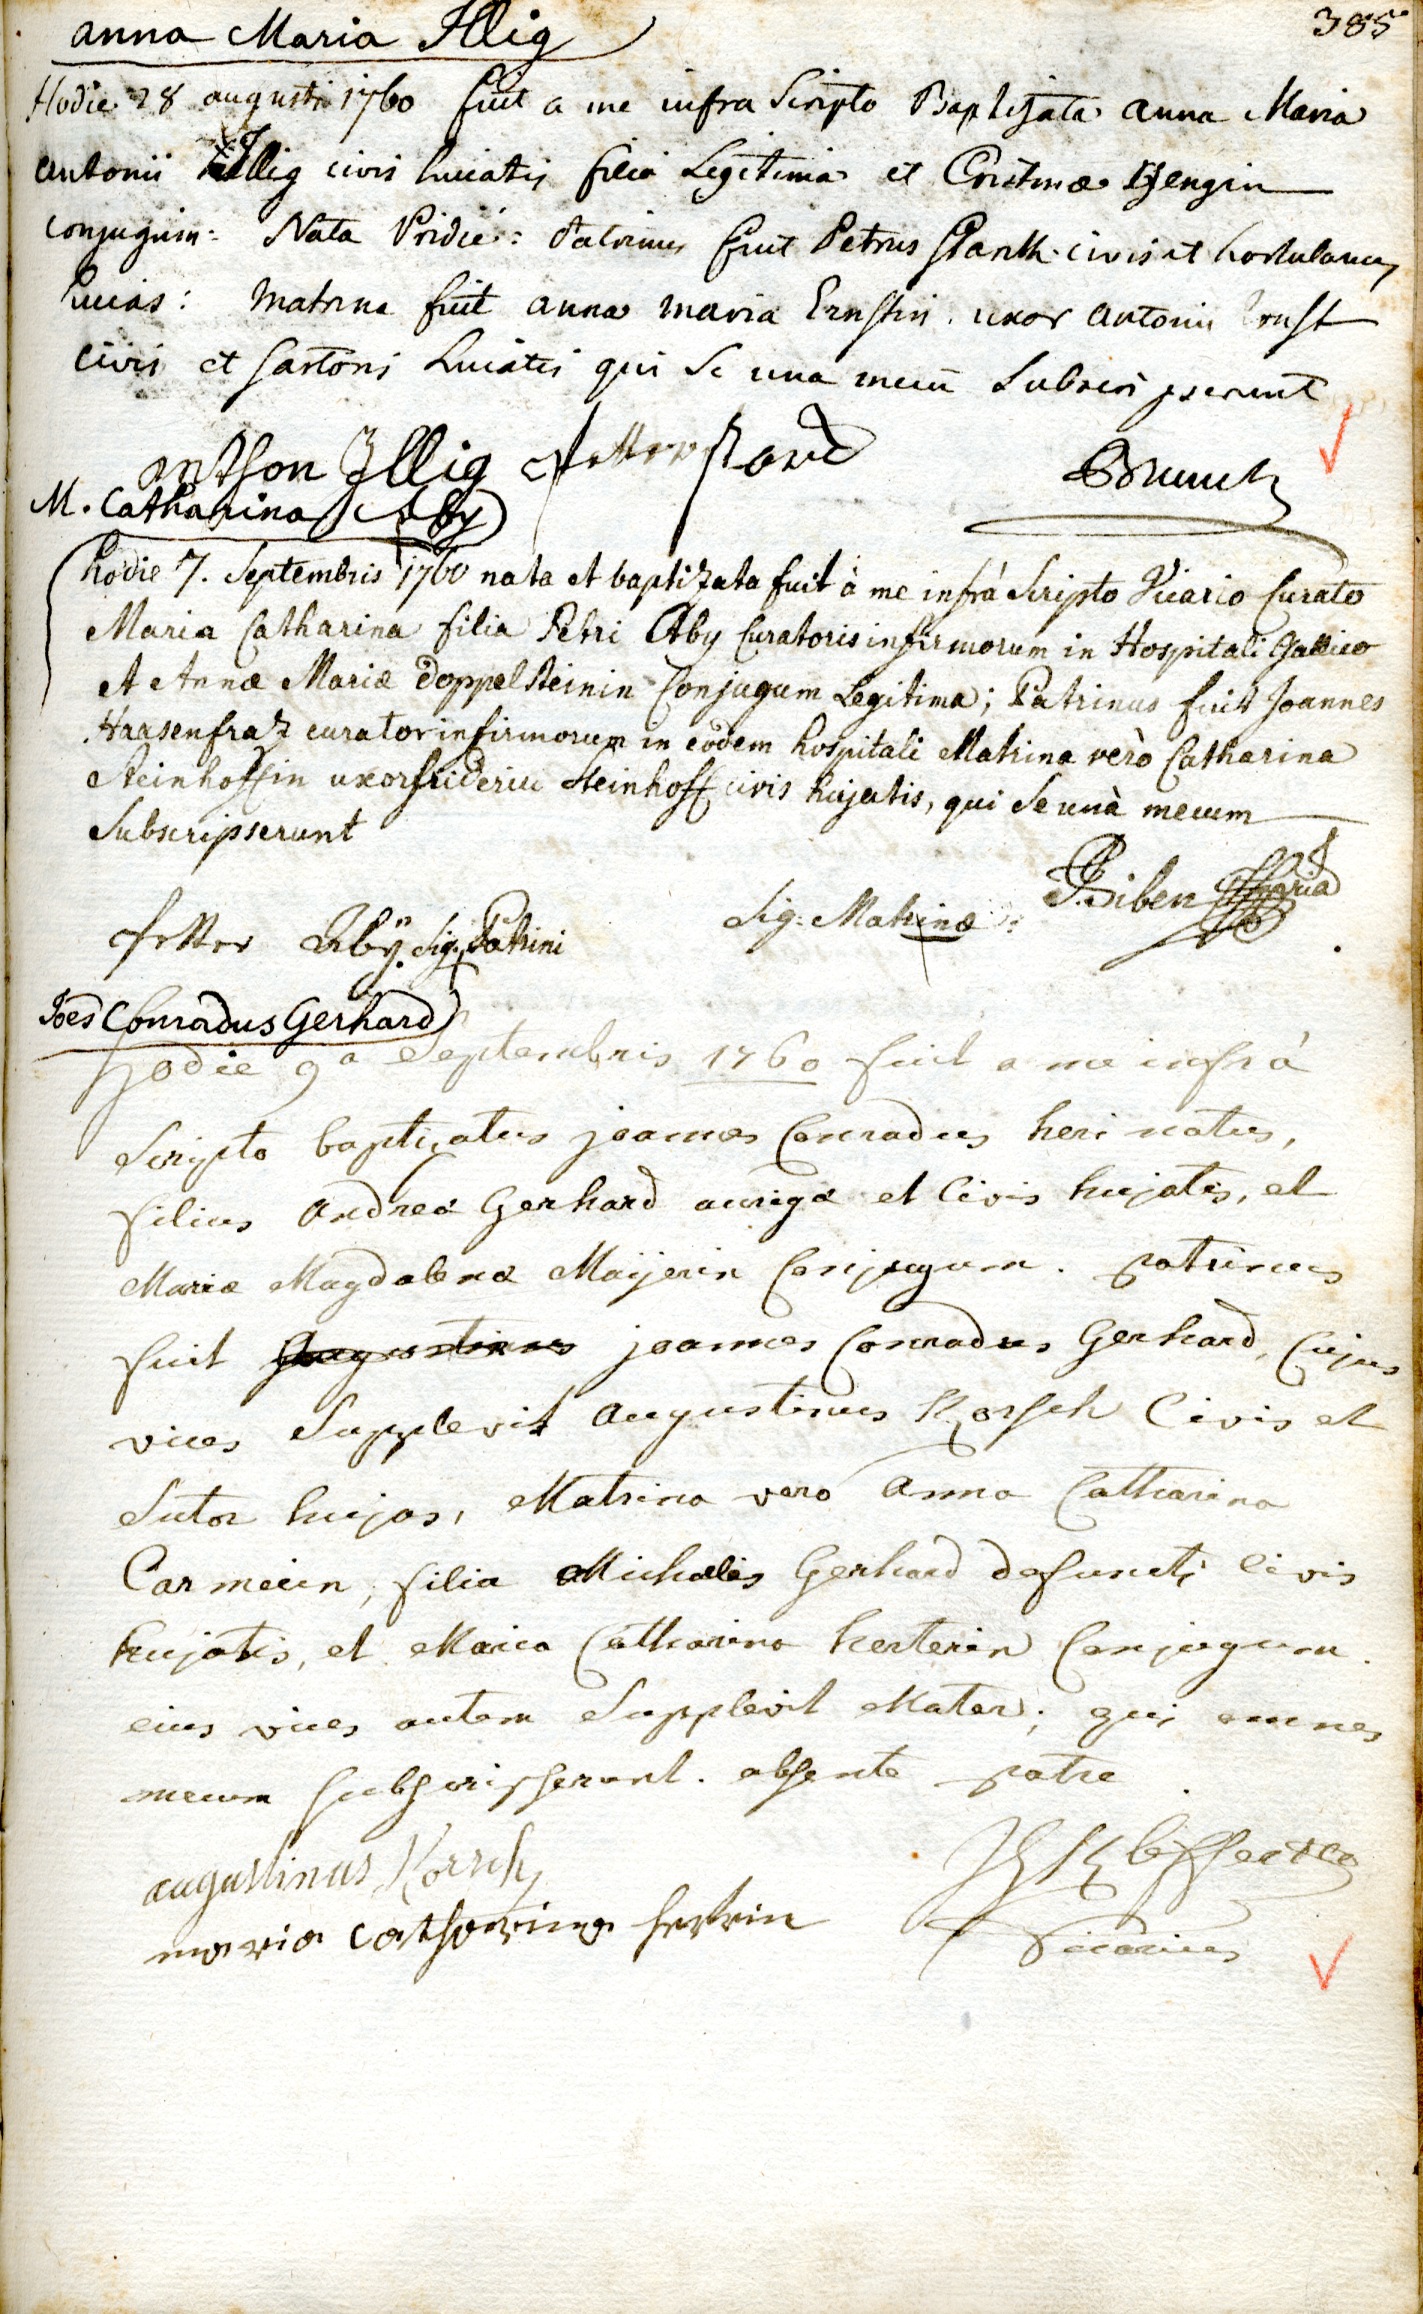 385
anna Maria Illig
Hodie 28 augusti 1760 fuit a me infra Scripto Baptizata anna Maria
antonii Illig civis huiatis filia Legitima et Cristinæ
conjugum: Nata Pridie: Patrinus fuit Petrus civis et hortulanus
huias: Matrina fuit anna maria Ernstin uxor antonii Ernst
civis et sartoris huiatis qui se una mecum subscripserunt
anthon Illig petter
M. Catharina Aby
hodie 7. Septembris 1760 nata et baptizata fuit à me infrà Scripto Vicario Curato
Maria Catharina filia Petri Aby Curatoris infirmorum in Hospitali Gallico
et Annæ Mariæ Doppelsteinin Conjugum Legitima; Patrinus fuit Joannes
Haasenfraz curator infirmorum in eodem hospitali Matrina verò Catharina
Steinhoffin uxor friderici Steinhoff civis hujatis, qui se unà mecum
Subscripserunt
petter Aby. Sig. Patrini Sig: Matrinæ:
Joes Conradus Gerhard
Hodie 9a Septembris 1760 fuit a me infrà
Scripto baptizatus joannes Conradus heri natus,
filius andreæ Gerhard aurigæ et Civis hujatis, et
Mariæ Magdalenæ Maijerin Conjugum. patrinus
fuit Augustinus joannes Conradus Gerhard, Cujus
vices Supplevit augustinus Korsch Civis et
Sutor hujas, Matrina vero anna Catharina
Carmein, filia Michaelis Gerhard defuncti Civis
hujatis, et Maria Catharina herterin Conjugum.
eius vices autem Supplevit Mater; qui omnes
mecum subscripserunt. absente patre.
augustinus Korsch
maria catharina hertrin
Vicarius